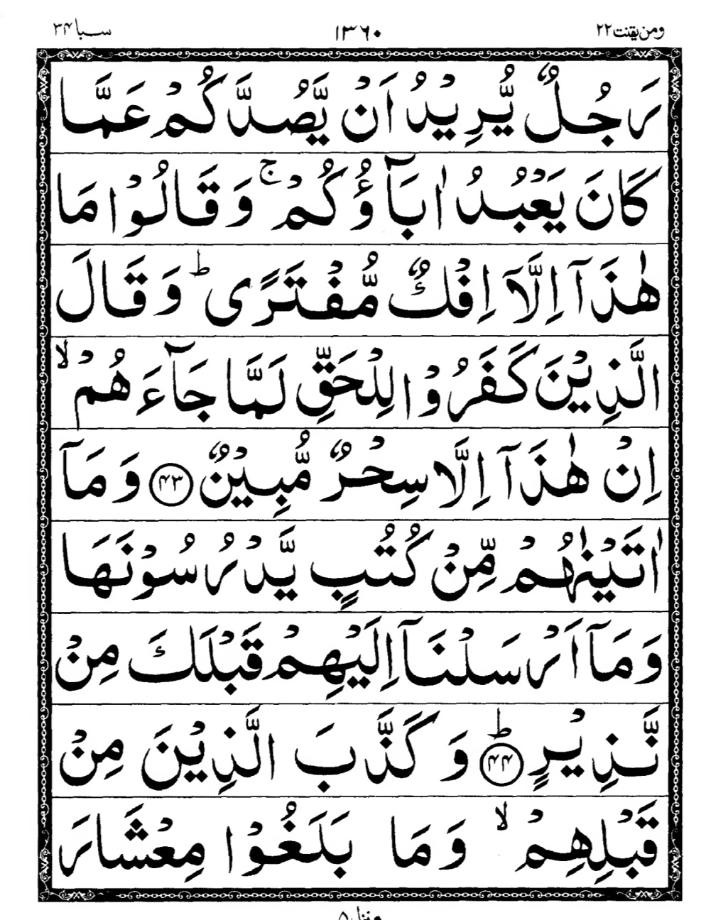 ومن يقنت ٢٢ ١٣٦٠ سبا ٣۴
رَجُلٌ يُّرِيْدُ اَنْ يَّصُدَّكُمْ عَمَّا
كَانَ يَعْبُدُ اٰبَآؤُكُمْ ۚ وَقَالُوْا مَا
هٰذَآ اِلَّآ اِفْكٌ مُّفْتَرًى ؕ وَقَالَ
الَّذِيْنَ كَفَرُوْا لِلْحَقِّ لَمَّا جَآءَهُمْ ۙ
اِنْ هٰذَآ اِلَّا سِحْرٌ مُّبِيْنٌ ﴿۴۳﴾ وَمَآ
اٰتَيْنٰهُمْ مِّنْ كُتُبٍ يَّدْرُسُوْنَهَا
وَمَآ اَرْسَلْنَآ اِلَيْهِمْ قَبْلَكَ مِنْ
نَّذِيْرٍ ؕ﴿۴۴﴾ وَكَذَّبَ الَّذِيْنَ مِنْ
قَبْلِهِمْ ۙ وَمَا بَلَغُوْا مِعْشَارَ
منزل ۵